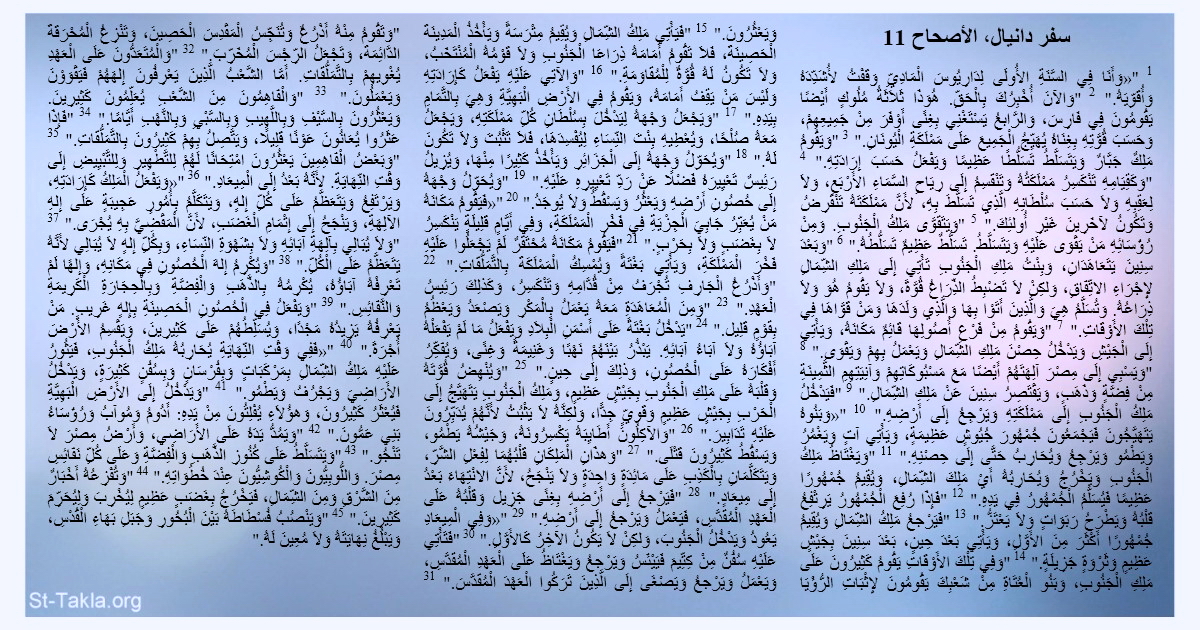 سفر دانيال، الأصحاح 11
1 "«وَأَنَا فِي السَّنَةِ الأُولَى لِدَارِيُوسَ الْمَادِيِّ وَقَفْتُ لأُشَدِّدَهُ
وَأُقَوِّيَهُ." 2 "وَالآنَ أُخْبِرُكَ بِالْحَقِّ. هُوَذَا ثَلاَثَةُ مُلُوكٍ أَيْضًا
يَقُومُونَ فِي فَارِسَ، وَالرَّابِعُ يَسْتَغْنِي بِغِنًى أَوْفَرَ مِنْ جَمِيعِهِمْ،
وَحَسَبَ قُوَّتِهِ بِغِنَاهُ يُهَيِّجُ الْجَمِيعَ عَلَى مَمْلَكَةِ الْيُونَانِ." 3 "وَيَقُومُ
مَلِكٌ جَبَّارٌ وَيَتَسَلَّطُ تَسَلُّطًا عَظِيمًا وَيَفْعَلُ حَسَبَ إِرَادَتِهِ." 4
"وَكَقِيَامِهِ تَنْكَسِرُ مَمْلَكَتُهُ وَتَنْقَسِمُ إِلَى رِيَاحِ السَّمَاءِ الأَرْبَعِ، وَلاَ
لِعَقِبِهِ وَلاَ حَسَبَ سُلْطَانِهِ الَّذِي تَسَلَّطَ بِهِ، لأَنَّ مَمْلَكَتَهُ تَنْقَرِضُ
وَتَكُونُ لآخَرِينَ غَيْرِ أُولئِكَ." 5 "وَيَتَقَوَّى مَلِكُ الْجَنُوبِ. وَمِنْ
رُؤَسَائِهِ مَنْ يَقْوَى عَلَيْهِ وَيَتَسَلَّطُ. تَسَلُّطٌ عَظِيمٌ تَسَلُّطُهُ." 6 "وَبَعْدَ
سِنِينَ يَتَعَاهَدَانِ، وَبِنْتُ مَلِكِ الْجَنُوبِ تَأْتِي إِلَى مَلِكِ الشِّمَالِ
لإِجْرَاءِ الاتِّفَاقِ، وَلكِنْ لاَ تَضْبِطُ الذِّرَاعُ قُوَّةً، وَلاَ يَقُومُ هُوَ وَلاَ
ذِرَاعُهُ. وَتُسَلَّمُ هِيَ وَالَّذِينَ أَتَوْا بِهَا وَالَّذِي وَلَدَهَا وَمَنْ قَوَّاهَا فِي
تِلْكَ الأَوْقَاتِ." 7 "وَيَقُومُ مِنْ فَرْعِ أُصُولِهَا قَائِمٌ مَكَانَهُ، وَيَأْتِي
إِلَى الْجَيْشِ وَيَدْخُلُ حِصْنَ مَلِكِ الشِّمَالِ وَيَعْمَلُ بِهِمْ وَيَقْوَى." 8
"وَيَسْبِي إِلَى مِصْرَ آلِهَتَهُمْ أَيْضًا مَعَ مَسْبُوكَاتِهِمْ وَآنِيَتِهِمِ الثَّمِينَةِ
مِنْ فِضَّةٍ وَذَهَبٍ، وَيَقْتَصِرُ سِنِينَ عَنْ مَلِكِ الشِّمَالِ." 9 "فَيَدْخُلُ
مَلِكُ الْجَنُوبِ إِلَى مَمْلَكَتِهِ وَيَرْجعُ إِلَى أَرْضِهِ." 10 "«وَبَنُوهُ
يَتَهَيَّجُونَ فَيَجْمَعُونَ جُمْهُورَ جُيُوشٍ عَظِيمَةٍ، وَيَأْتِي آتٍ وَيَغْمُرُ
وَيَطْمُو وَيَرْجعُ وَيُحَارِبُ حَتَّى إِلَى حِصْنِهِ." 11 "وَيَغْتَاظُ مَلِكُ
الْجَنُوبِ وَيَخْرُجُ وَيُحَارِبُهُ أَيْ مَلِكَ الشِّمَالِ، وَيُقِيمُ جُمْهُورًا
عَظِيمًا فَيُسَلَّمُ الْجُمْهُورُ فِي يَدِهِ." 12 "فَإِذَا رُفِعَ الْجُمْهُورُ يَرْتَفِعُ
قَلْبُهُ وَيَطْرَحُ رَبَوَاتٍ وَلاَ يَعْتَزُّ." 13 "فَيَرْجعُ مَلِكُ الشِّمَالِ وَيُقِيمُ
جُمْهُورًا أَكْثَرَ مِنَ الأَوَّلِ، وَيَأْتِي بَعْدَ حِينٍ، بَعْدَ سِنِينَ بِجَيْشٍ
عَظِيمٍ وَثَرْوَةٍ جَزِيلَةٍ." 14 "وَفِي تِلْكَ الأَوْقَاتِ يَقُومُ كَثِيرُونَ عَلَى
مَلِكِ الْجَنُوبِ، وَبَنُو الْعُتَاةِ مِنْ شَعْبِكَ يَقُومُونَ لإِثْبَاتِ الرُّؤْيَا
وَيَعْثُرُونَ." 15 "فَيَأْتِي مَلِكُ الشِّمَالِ وَيُقِيمُ مِتْرَسَةً وَيَأْخُذُ الْمَدِينَةَ
الْحَصِينَةَ، فَلاَ تَقُومُ أَمَامَهُ ذِرَاعَا الْجَنُوبِ وَلاَ قَوْمُهُ الْمُنْتَخَبُ،
وَلاَ تَكُونُ لَهُ قُوَّةٌ لِلْمُقَاوَمَةِ." 16 "وَالآتِي عَلَيْهِ يَفْعَلُ كَإِرَادَتِهِ
وَلَيْسَ مَنْ يَقِفُ أَمَامَهُ، وَيَقُومُ فِي الأَرْضِ الْبَهِيَّةِ وَهِيَ بِالتَّمَامِ
بِيَدِهِ." 17 "وَيَجْعَلُ وَجْهَهُ لِيَدْخُلَ بِسُلْطَانِ كُلِّ مَمْلَكَتِهِ، وَيَجْعَلُ
مَعَهُ صُلْحًا، وَيُعْطِيهِ بِنْتَ النِّسَاءِ لِيُفْسِدَهَا، فَلاَ تَثْبُتُ وَلاَ تَكُونُ
لَهُ." 18 "وَيُحَوِّلُ وَجْهَهُ إِلَى الْجَزَائِرِ وَيَأْخُذُ كَثِيرًا مِنْهَا، وَيُزِيلُ
رَئِيسٌ تَعْيِيرَهُ فَضْلاً عَنْ رَدِّ تَعْيِيرِهِ عَلَيْهِ." 19 "وَيُحَوِّلُ وَجْهَهُ
إِلَى حُصُونِ أَرْضِهِ وَيَعْثُرُ وَيَسْقُطُ وَلاَ يُوجَدُ." 20 "«فَيَقُومُ مَكَانَهُ
مَنْ يُعَبِّرُ جَابِيَ الْجِزْيَةِ فِي فَخْرِ الْمَمْلَكَةِ، وَفِي أَيَّامٍ قَلِيلَةٍ يَنْكَسِرُ
لاَ بِغَضَبٍ وَلاَ بِحَرْبٍ." 21 "فَيَقُومُ مَكَانَهُ مُحْتَقَرٌ لَمْ يَجْعَلُوا عَلَيْهِ
فَخْرَ الْمَمْلَكَةِ، وَيَأْتِي بَغْتَةً وَيُمْسِكُ الْمَمْلَكَةَ بِالتَّمَلُّقَاتِ." 22
"وَأَذْرُعُ الْجَارِفِ تُجْرَفُ مِنْ قُدَّامِهِ وَتَنْكَسِرُ، وَكَذلِكَ رَئِيسُ
الْعَهْدِ." 23 "وَمِنَ الْمُعَاهَدَةِ مَعَهُ يَعْمَلُ بِالْمَكْرِ وَيَصْعَدُ وَيَعْظُمُ
بِقَوْمٍ قَلِيل." 24 "يَدْخُلُ بَغْتَةً عَلَى أَسْمَنِ الْبِلاَدِ وَيَفْعَلُ مَا لَمْ يَفْعَلْهُ
آبَاؤُهُ وَلاَ آبَاءُ آبَائِهِ. يَبْذُرُ بَيْنَهُمْ نَهْبًا وَغَنِيمَةً وَغِنًى، وَيُفَكِّرُ
أَفْكَارَهُ عَلَى الْحُصُونِ، وَذلِكَ إِلَى حِينٍ." 25 "وَيُنْهِضُ قُوَّتَهُ
وَقَلْبَهُ عَلَى مَلِكِ الْجَنُوبِ بِجَيْشٍ عَظِيمٍ، وَمَلِكُ الْجَنُوبِ يَتَهَيَّجُ إِلَى
الْحَرْبِ بِجَيْشٍ عَظِيمٍ وَقَوِيٍّ جِدًّا، وَلكِنَّهُ لاَ يَثْبُتُ لأَنَّهُمْ يُدَبِّرُونَ
عَلَيْهِ تَدَابِيرَ." 26 "وَالآكِلُونَ أَطَايِبَهُ يَكْسِرُونَهُ، وَجَيْشُهُ يَطْمُو،
وَيَسْقُطُ كَثِيرُونَ قَتْلَى." 27 "وَهذَانِ الْمَلِكَانِ قَلْبُهُمَا لِفِعْلِ الشَّرِّ،
وَيَتَكَلَّمَانِ بِالْكَذِبِ عَلَى مَائِدَةٍ وَاحِدَةٍ وَلاَ يَنْجَحُ، لأَنَّ الانْتِهَاءَ بَعْدُ
إِلَى مِيعَادٍ." 28 "فَيَرْجعُ إِلَى أَرْضِهِ بِغِنًى جَزِيل وَقَلْبُهُ عَلَى
الْعَهْدِ الْمُقَدَّسِ، فَيَعْمَلُ وَيَرْجعُ إِلَى أَرْضِهِ." 29 "«وَفِي الْمِيعَادِ
يَعُودُ وَيَدْخُلُ الْجَنُوبَ، وَلكِنْ لاَ يَكُونُ الآخِرُ كَالأَوَّلِ." 30 "فَتَأْتِي
عَلَيْهِ سُفُنٌ مِنْ كِتِّيمَ فَيَيْئَسُ وَيَرْجعُ وَيَغْتَاظُ عَلَى الْعَهْدِ الْمُقَدَّسِ،
وَيَعْمَلُ وَيَرْجعُ وَيَصْغَى إِلَى الَّذِينَ تَرَكُوا الْعَهْدَ الْمُقَدَّسَ." 31
"وَتَقُومُ مِنْهُ أَذْرُعٌ وَتُنَجِّسُ الْمَقْدِسَ الْحَصِينَ، وَتَنْزِعُ الْمُحْرَقَةَ
الدَّائِمَةَ، وَتَجْعَلُ الرِّجْسَ الْمُخَرِّبَ." 32 "وَالْمُتَعَدُّونَ عَلَى الْعَهْدِ
يُغْوِيهِمْ بِالتَّمَلُّقَاتِ. أَمَّا الشَّعْبُ الَّذِينَ يَعْرِفُونَ إِلهَهُمْ فَيَقْوَوْنَ
وَيَعْمَلُونَ." 33 "وَالْفَاهِمُونَ مِنَ الشَّعْبِ يُعَلِّمُونَ كَثِيرِينَ.
وَيَعْثُرُونَ بِالسَّيْفِ وَبِاللَّهِيبِ وَبِالسَّبْيِ وَبِالنَّهْبِ أَيَّامًا." 34 "فَإِذَا
عَثَرُوا يُعَانُونَ عَوْنًا قَلِيلاً، وَيَتَّصِلُ بِهِمْ كَثِيرُونَ بِالتَّمَلُّقَاتِ." 35
"وَبَعْضُ الْفَاهِمِينَ يَعْثُرُونَ امْتِحَانًا لَهُمْ لِلتَّطْهِيرِ وَلِلتَّبْيِيضِ إِلَى
وَقْتِ النِّهَايَةِ. لأَنَّهُ بَعْدُ إِلَى الْمِيعَادِ." 36 "«وَيَفْعَلُ الْمَلِكُ كَإِرَادَتِهِ،
وَيَرْتَفِعُ وَيَتَعَظَّمُ عَلَى كُلِّ إِلهٍ، وَيَتَكَلَّمُ بِأُمُورٍ عَجِيبَةٍ عَلَى إِلهِ
الآلِهَةِ، وَيَنْجَحُ إِلَى إِتْمَامِ الْغَضَبِ، لأَنَّ الْمَقْضِيَّ بِهِ يُجْرَى." 37
"وَلاَ يُبَالِي بِآلِهَةِ آبَائِهِ وَلاَ بِشَهْوَةِ النِّسَاءِ، وَبِكُلِّ إِلهٍ لاَ يُبَالِي لأَنَّهُ
يَتَعَظَّمُ عَلَى الْكُلِّ." 38 "وَيُكْرِمُ إِلهَ الْحُصُونِ فِي مَكَانِهِ، وَإِلهًا لَمْ
تَعْرِفْهُ آبَاؤُهُ، يُكْرِمُهُ بِالذَّهَبِ وَالْفِضَّةِ وَبِالْحِجَارَةِ الْكَرِيمَةِ
وَالنَّفَائِسِ." 39 "وَيَفْعَلُ فِي الْحُصُونِ الْحَصِينَةِ بِإِلهٍ غَرِيبٍ. مَنْ
يَعْرِفُهُ يَزِيدُهُ مَجْدًا، وَيُسَلِّطُهُمْ عَلَى كَثِيرِينَ، وَيَقْسِمُ الأَرْضَ
أُجْرَةً." 40 "«فَفِي وَقْتِ النِّهَايَةِ يُحَارِبُهُ مَلِكُ الْجَنُوبِ، فَيَثُورُ
عَلَيْهِ مَلِكُ الشِّمَالِ بِمَرْكَبَاتٍ وَبِفُرْسَانٍ وَبِسُفُنٍ كَثِيرَةٍ، وَيَدْخُلُ
الأَرَاضِيَ وَيَجْرُفُ وَيَطْمُو." 41 "وَيَدْخُلُ إِلَى الأَرْضِ الْبَهِيَّةِ
فَيُعْثَرُ كَثِيرُونَ، وَهؤُلاَءِ يُفْلِتُونَ مِنْ يَدِهِ: أَدُومُ وَمُوآبُ وَرُؤَسَاءُ
بَنِي عَمُّونَ." 42 "وَيَمُدُّ يَدَهُ عَلَى الأَرَاضِي، وَأَرْضُ مِصْرَ لاَ
تَنْجُو." 43 "وَيَتَسَلَّطُ عَلَى كُنُوزِ الذَّهَبِ وَالْفِضَّةِ وَعَلَى كُلِّ نَفَائِسِ
مِصْرَ. وَاللُّوبِيُّونَ وَالْكُوشِيُّونَ عِنْدَ خُطُوَاتِهِ." 44 "وَتُفْزِعُهُ أَخْبَارٌ
مِنَ الشَّرْقِ وَمِنَ الشِّمَالِ، فَيَخْرُجُ بِغَضَبٍ عَظِيمٍ لِيُخْرِبَ وَلِيُحَرِّمَ
كَثِيرِينَ." 45 "وَيَنْصُبُ فُسْطَاطَهُ بَيْنَ الْبُحُورِ وَجَبَلِ بَهَاءِ الْقُدْسِ،
وَيَبْلُغُ نِهَايَتَهُ وَلاَ مُعِينَ لَهُ."
St-Takla.org